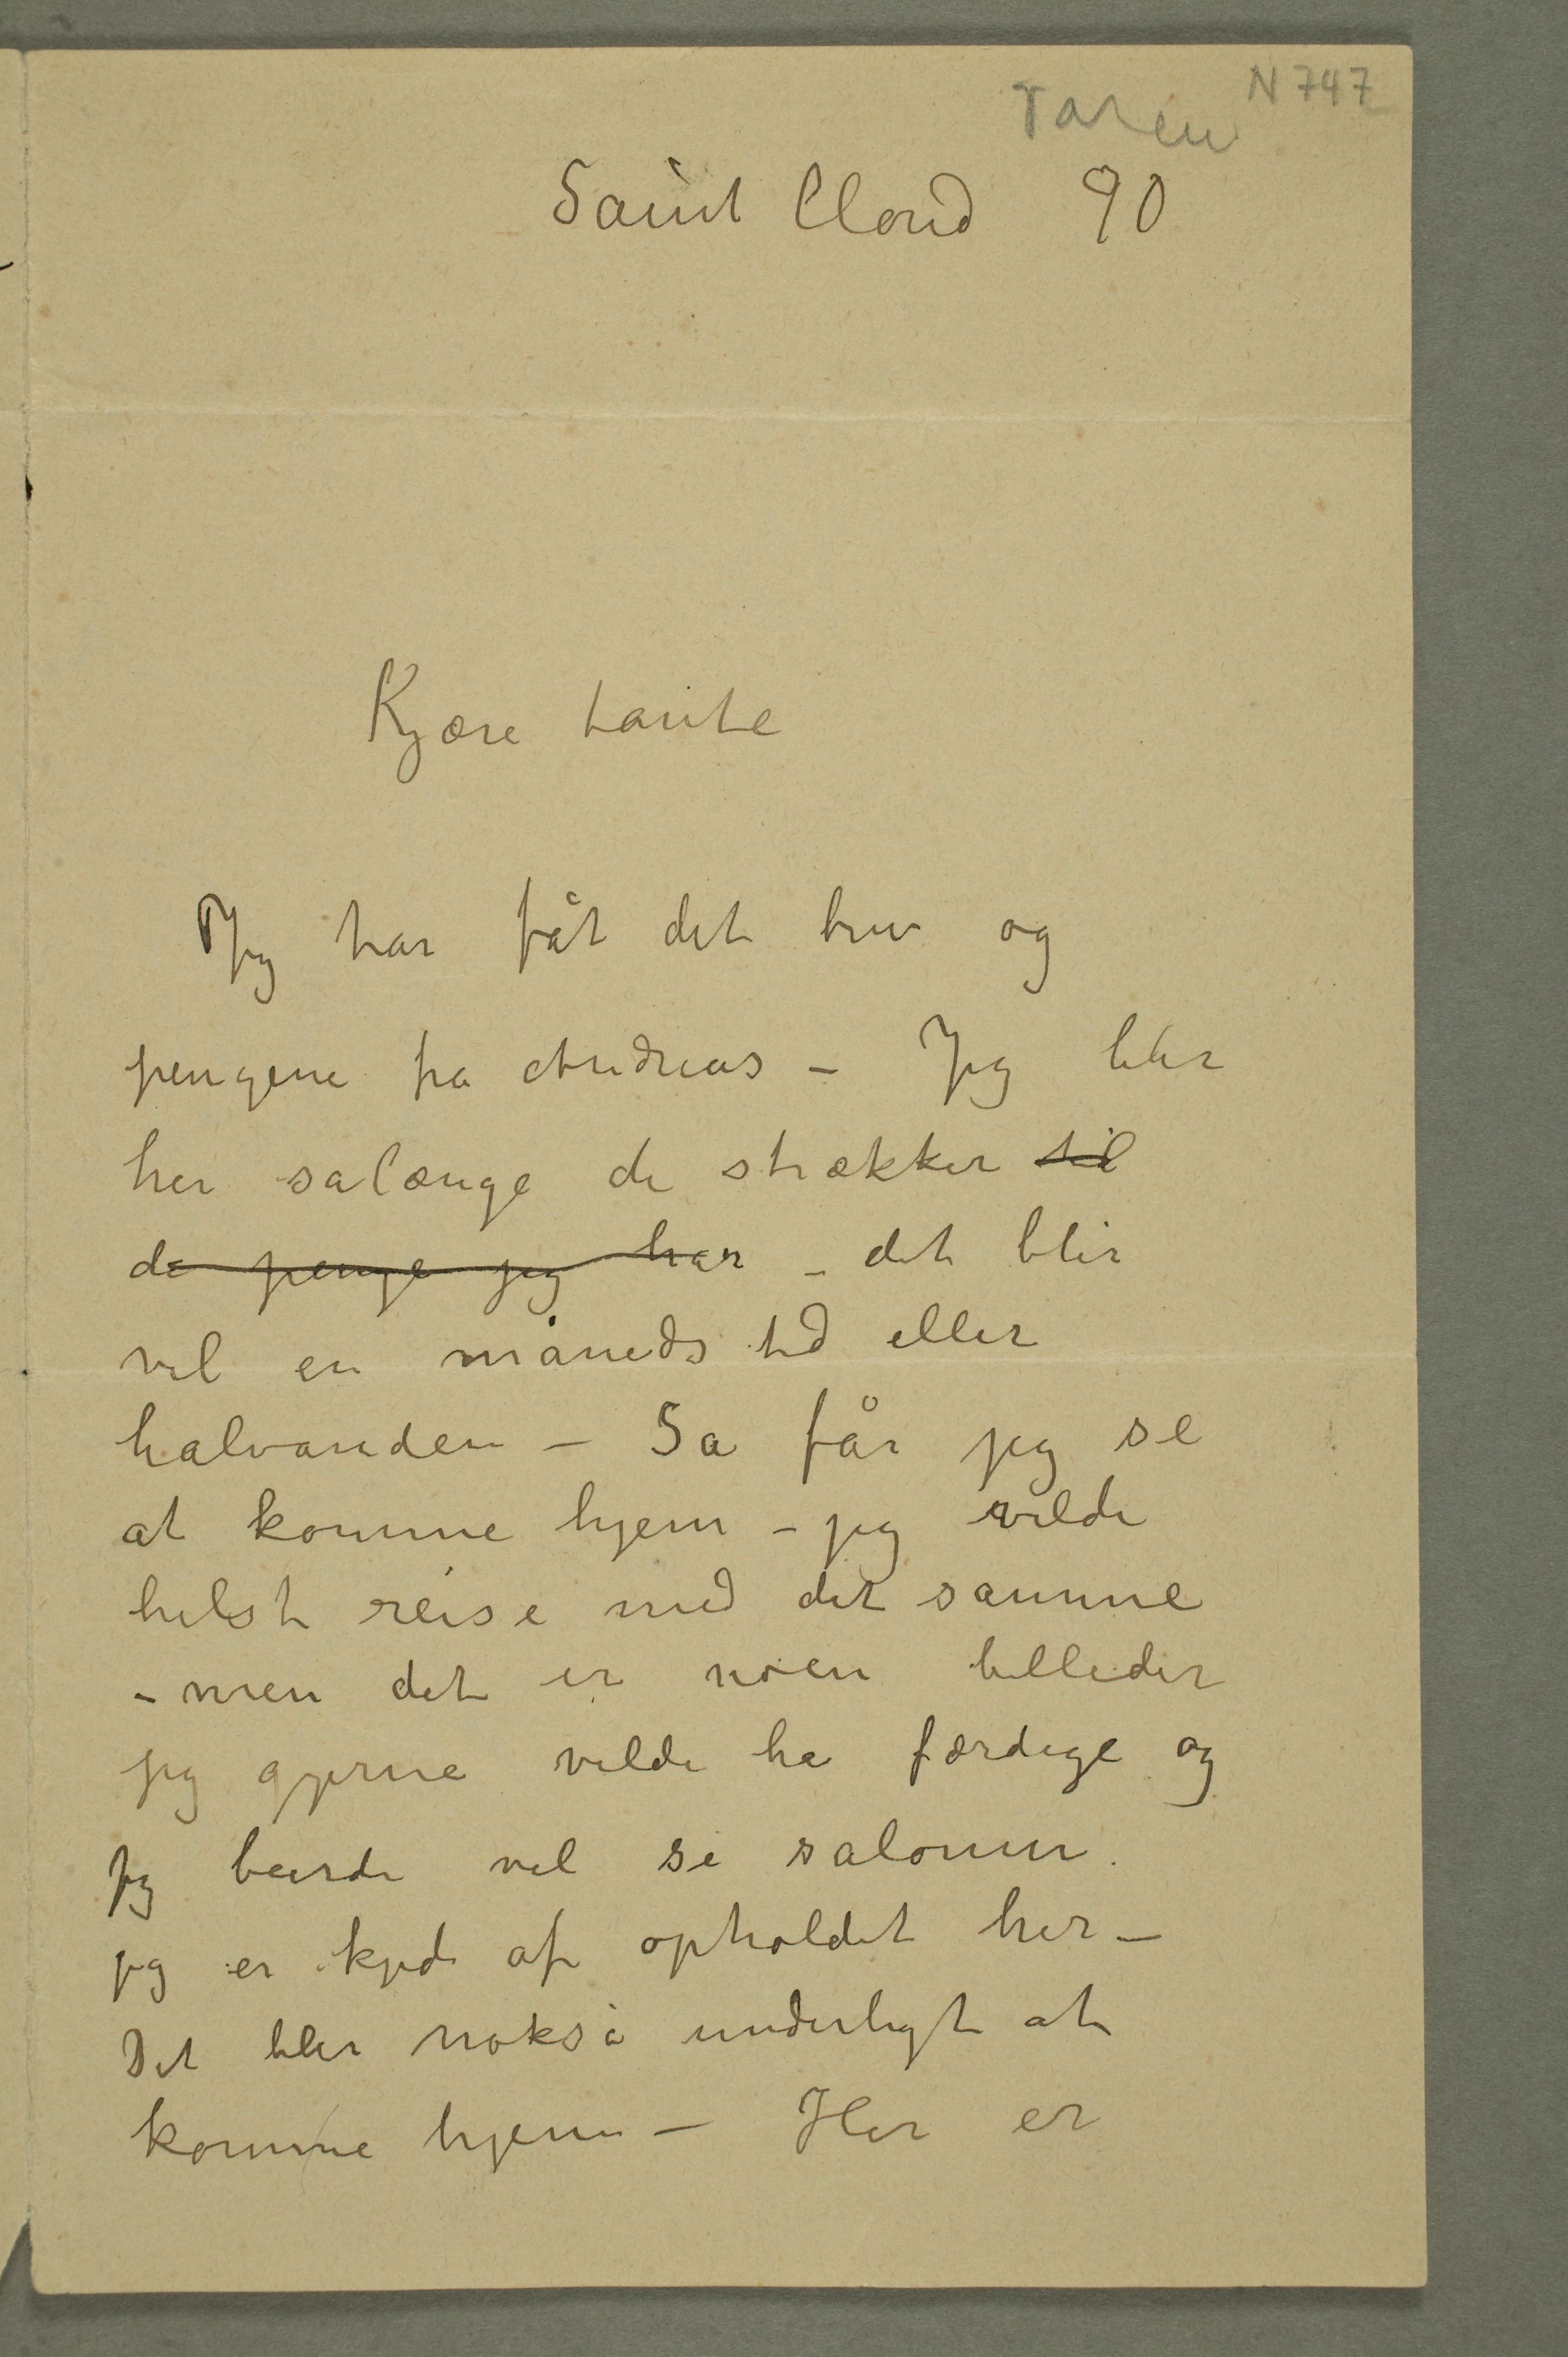 N 747
Taren
Saint Cloud 90
Kjære tante
Jeg har fåt dit brev og
pengene fra Andreas – Jeg blir
her salænge de strækker til
de penge jeg har – det blir
vel en måneds tid eller
halvanden – Sa får jeg se
at komme hjem – jeg vilde
helst reise med det samme
– men det er noen billeder
jeg gjerne vilde ha færdige og
jeg burde vel se salonen.
jeg er kjed af opholdet her –
Det blir nokså underligt at
komme hjem – Her er